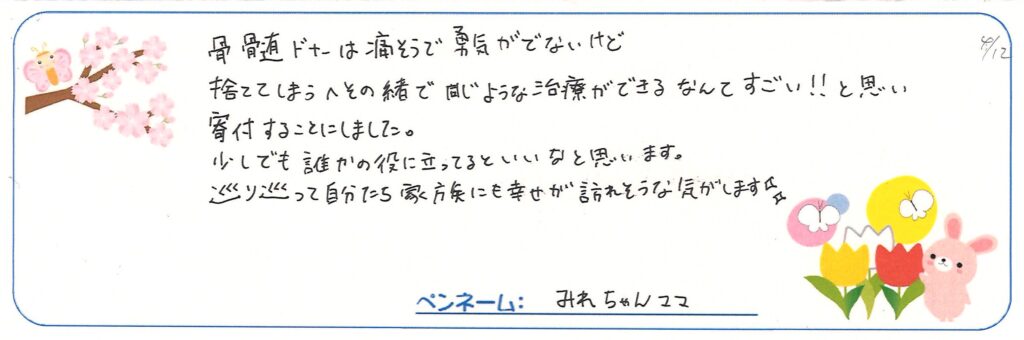 4/12
骨髄ドナーは痛そうで勇気がでないけど
捨ててしまうへその緒で同じような治療ができるなんてすごい!!と思い
寄付することにしました。
少しでも誰かの役に立ってるといいなと思います。
巡り巡って自分たち家族にも幸せが訪れそうな気がします
ペンネーム: みれちゃんママ